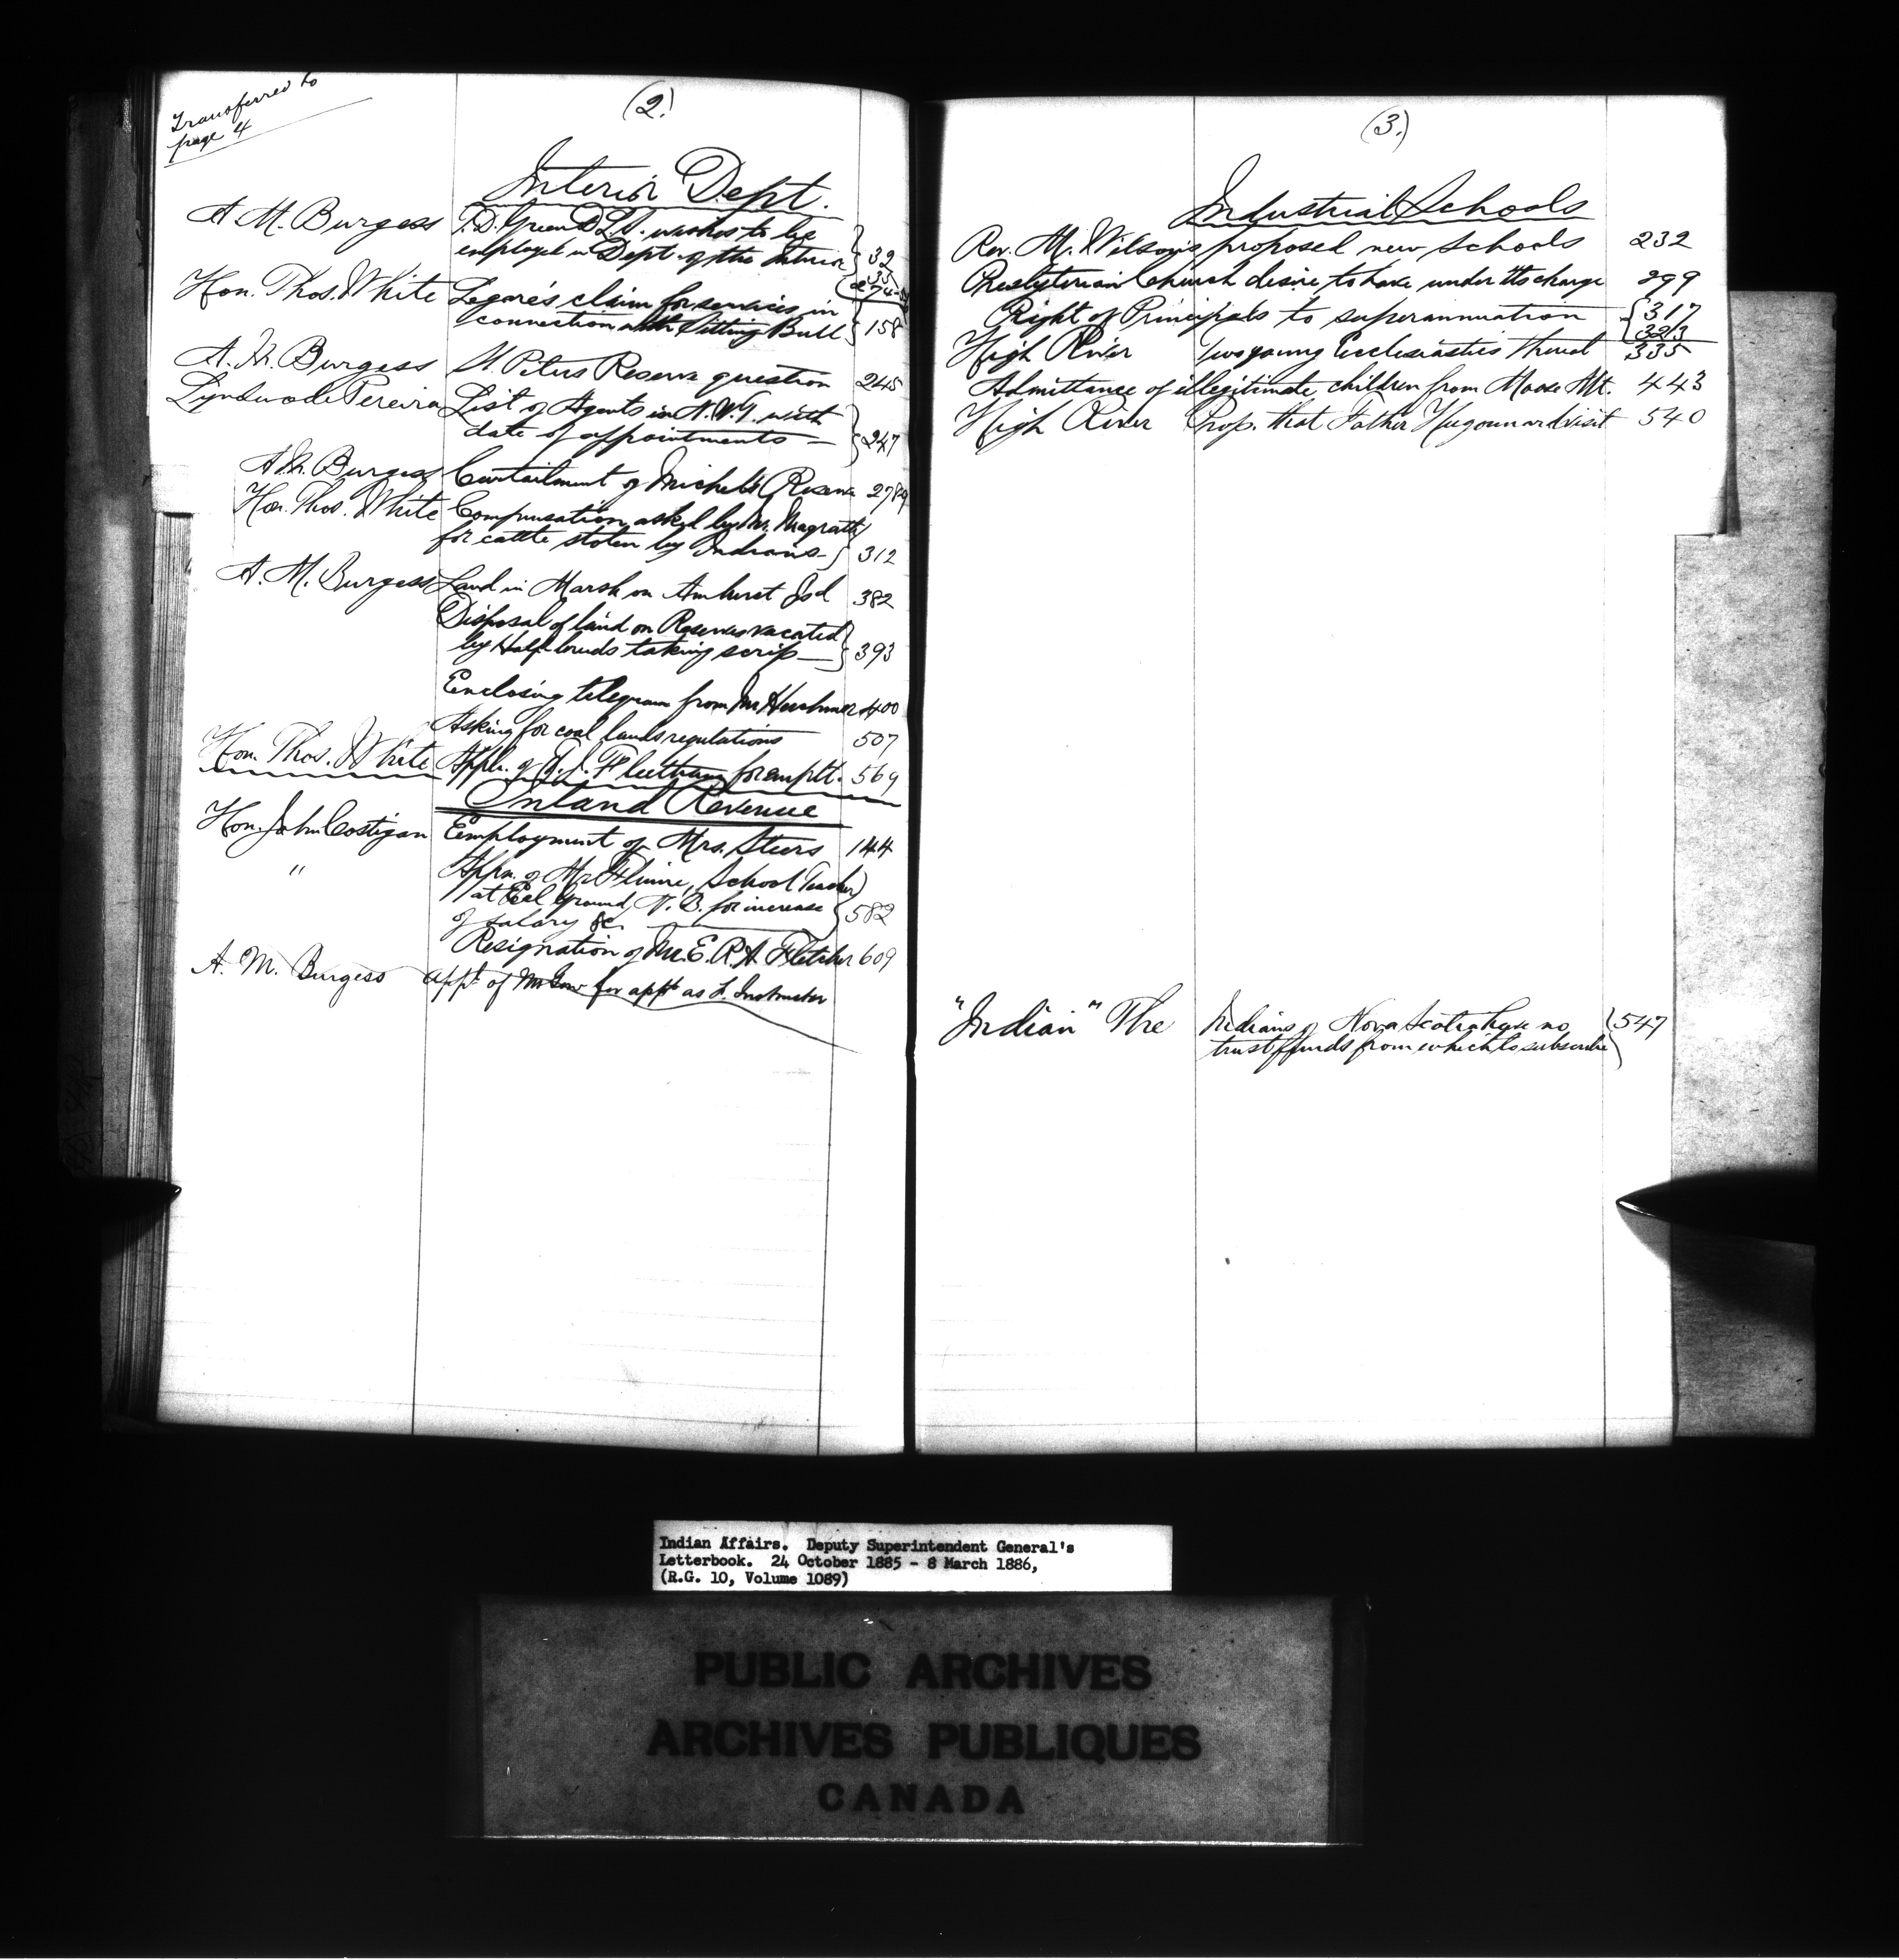 Transferred to
page 4
(2.)
Interior Dept.
A. M. Burgess T. D. Green D.L.S. wishes to be
employed in Dept. of the Interior 32
35
Hon. Thos. White Legaré's claim for services in
connection with Sitting Bull 158
A. M. Burgess St. Peters Reserve question 245
Lyndwode Pereira List of Agents in N.W.T. with
date of appointments — 247
A. M. Burgess Curtailment of Michel's Reserve
Hon. Thos. White Compensation asked by Mr. Magrath
for cattle stolen by Indians - 312
A. M. Burgess Land in Marsh on Amherst Isd 382
Disposal of land on Reserves vacated
by Half-breeds taking scrip — 393
Enclosing telegram from Mr 400
Asking for coal lands regulations 507
Hon. Thos. White Appln. of for emplt. 569
Inland Revenue
Hon. John Costigan Employment of Mrs. Steers 144
" Appn. of Mr. School Teacher
at Eel Ground, N.B. for increase
of salary &c. 582
Resignation of Mr. E. R. A. Fletcher 609
A. M. Burgess appt of Mr for appt as F. Instructor
(3.)
Industrial Schools
Rev. Mr. Wilson's proposed new Schools 232
Presbyterian Church desire to have under its charge 299
Right of Principals to superannuation 317
323
High River Two young Ecclesiastics 335
Admittance of illegitimate children from Moose Mt. 443
High River Prop. that Father Hugonnard visit 540
"Indian" The Indians of Nova Scotia have no
trust funds from which to subscribe 547
Indian Affairs. Deputy Superintendent General's
Letterbook. 24 October 1885 - 8 March 1886,
(R.G. 10, Volume 1089)
PUBLIC ARCHIVES
ARCHIVES PUBLIQUES
CANADA